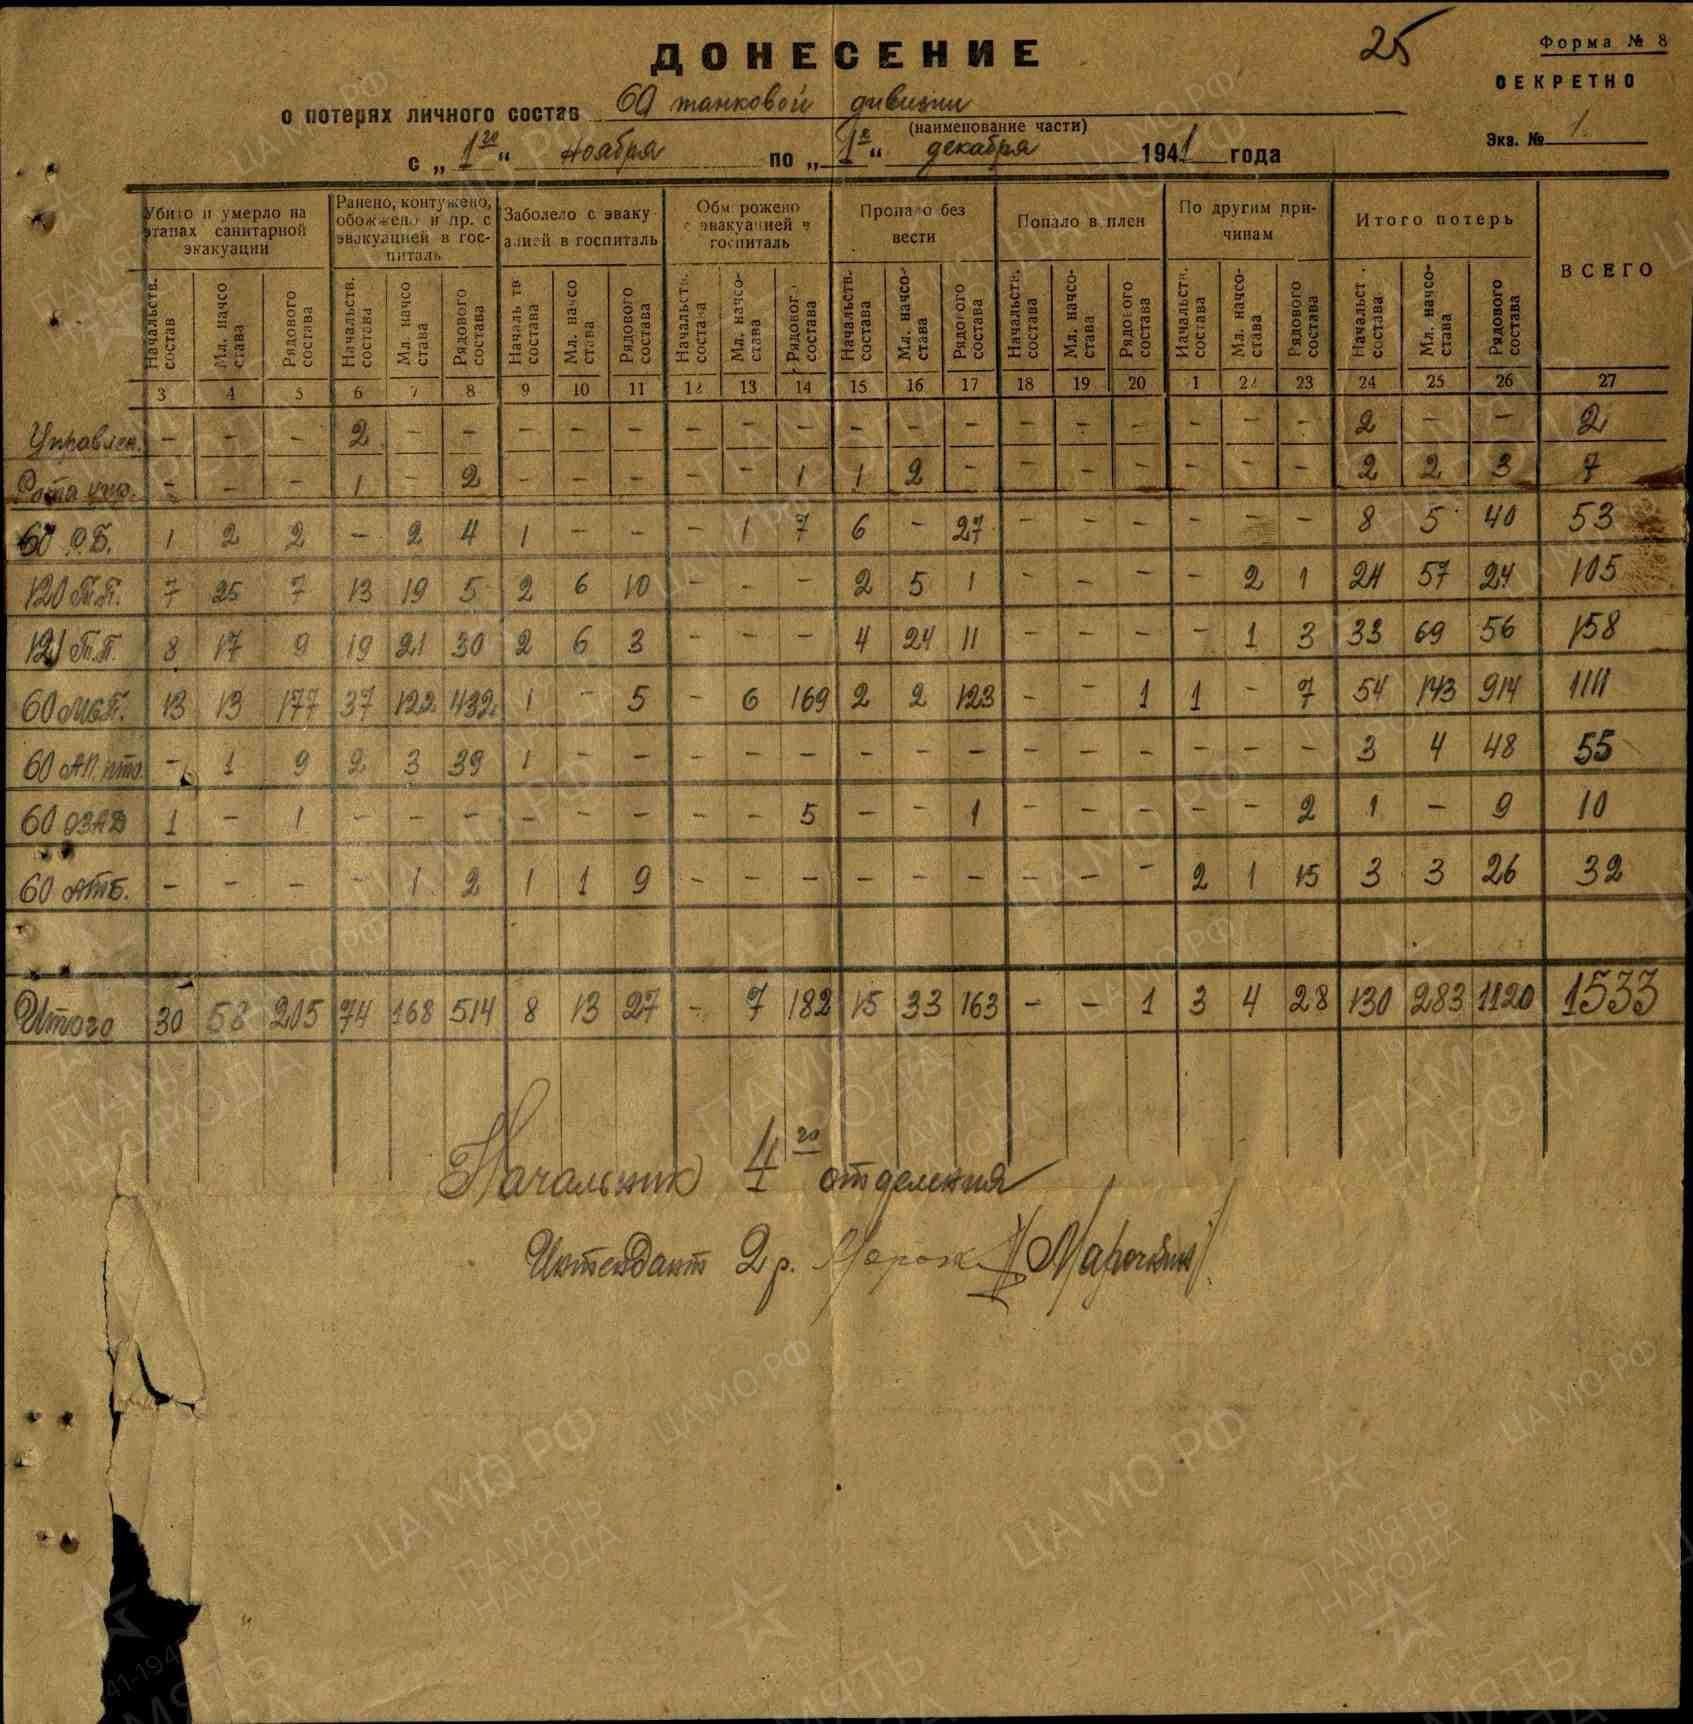 25
Форма № 8
ДОНЕСЕНИЕ
СЕКРЕТНО
о потерях личного состав 60 танковой дивизии
(наименование части)
Экз. № 1.
с „1го“ ноября по „1е“ декабря 1941 года
Убито и умерло на этапах санитарной эвакуации | Ранено, контужено, обожжено и пр. с эвакуацией в госпиталь | Заболело с эвакуацией в госпиталь | Обморожено с эвакуацией в госпиталь | Пропало без вести | Попало в плен | По другим причинам | Итого потерь | ВСЕГО
Начальств. состав | Мл. начсостава | Рядового состава | Начальств. состава | Мл. начсостава | Рядового состава | Начальств состава | Мл. начсостава | Рядового состава | Начальств. состава | Мл. начсостава | Рядового состава | Начальств. состава | Мл. начсостава | Рядового состава | Начальств. состава | Мл. начсостава | Рядового состава | Начальств. состава | Мл. начсостава | Рядового состава | Начальст. состава | Мл. начсостава | Рядового состава
3 4 5 6 7 8 9 10 11 12 13 14 15 16 17 18 19 20 1 22 23 24 25 26 27
Управлен. - - - 2 - - - - - - - - - - - - - - - - - 2 - - 2
Рота упр. - - - 1 - 2 - - - - - 1 1 2 - - - - - - - 2 2 3 7
60 Р.Б. 1 2 2 - 2 4 1 - - - 1 7 6 - 27 - - - - - - 8 5 40 53
120 Т.П. 7 25 7 13 19 5 2 6 10 - - - 2 5 1 - - - - 2 1 24 57 24 105
121 Т.П. 8 17 9 19 21 30 2 6 3 - - - 4 24 11 - - - - 1 3 33 69 56 158
60 МСП. 13 13 177 37 122 432 1 - 5 - 6 169 2 2 123 - - 1 1 - 7 54 143 914 1111
60 АП. пто. - 1 9 2 3 39 1 - - - - - - - - - - - - - - 3 4 48 55
60 ОЗАД 1 - 1 - - - - - - - - 5 - - 1 - - - - - 2 1 - 9 10
60 АТБ. - - - - 1 2 1 1 9 - - - - - - - - - 2 1 15 3 3 26 32
Итого 30 58 205 74 168 514 8 13 27 - 7 182 15 33 163 - - 1 3 4 28 130 283 1120 1533
Начальник 4го отделения
Интендант 2 р.
ЦА МО РФ
ПАМЯТЬ НАРОДА